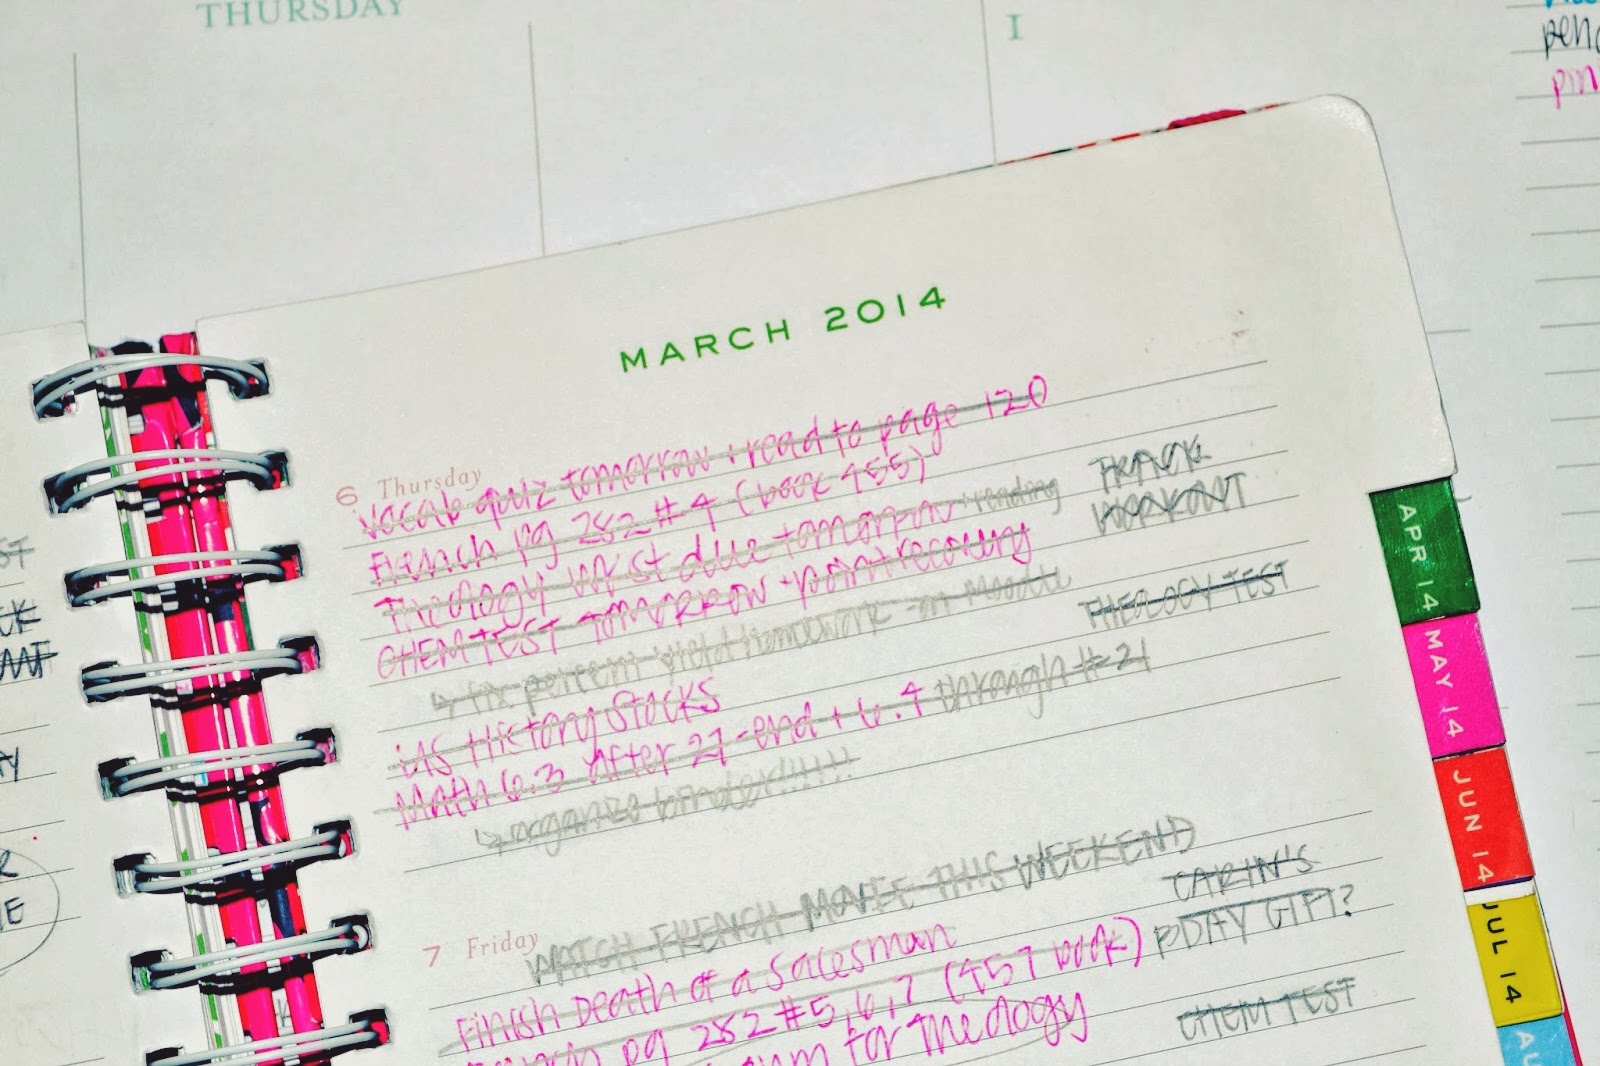 THURSDAY
I
pin
MARCH 2014
6 Thursday
vocab quiz tomorrow + read to page 120
French pg 282 #4 (book 455)
TRACK
WORKOUT
Theology wkst due tomorrow + reading
CHEM TEST TOMORROW + point recovery
THEOLOGY TEST
↳ fix percent yield homework on Moodle
US History Stocks
Math 6.3 after 27-end + 6.4 through #21
↳ organize binder!!!!!
WATCH FRENCH MOVIE THIS WEEKEND
CARIN'S
BDAY GIFT?
7 Friday
Finish Death of a Salesman
French pg 282 #5,6,7 (457 book)
for Theology
CHEM TEST
APR 14
MAY 14
JUN 14
JUL 14
AU